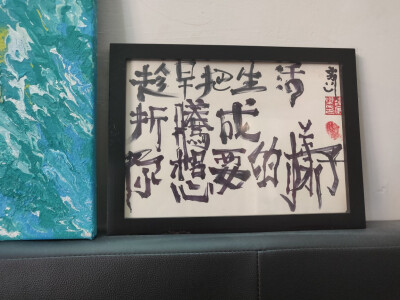 趁早把生活
折腾成
你想要的样子